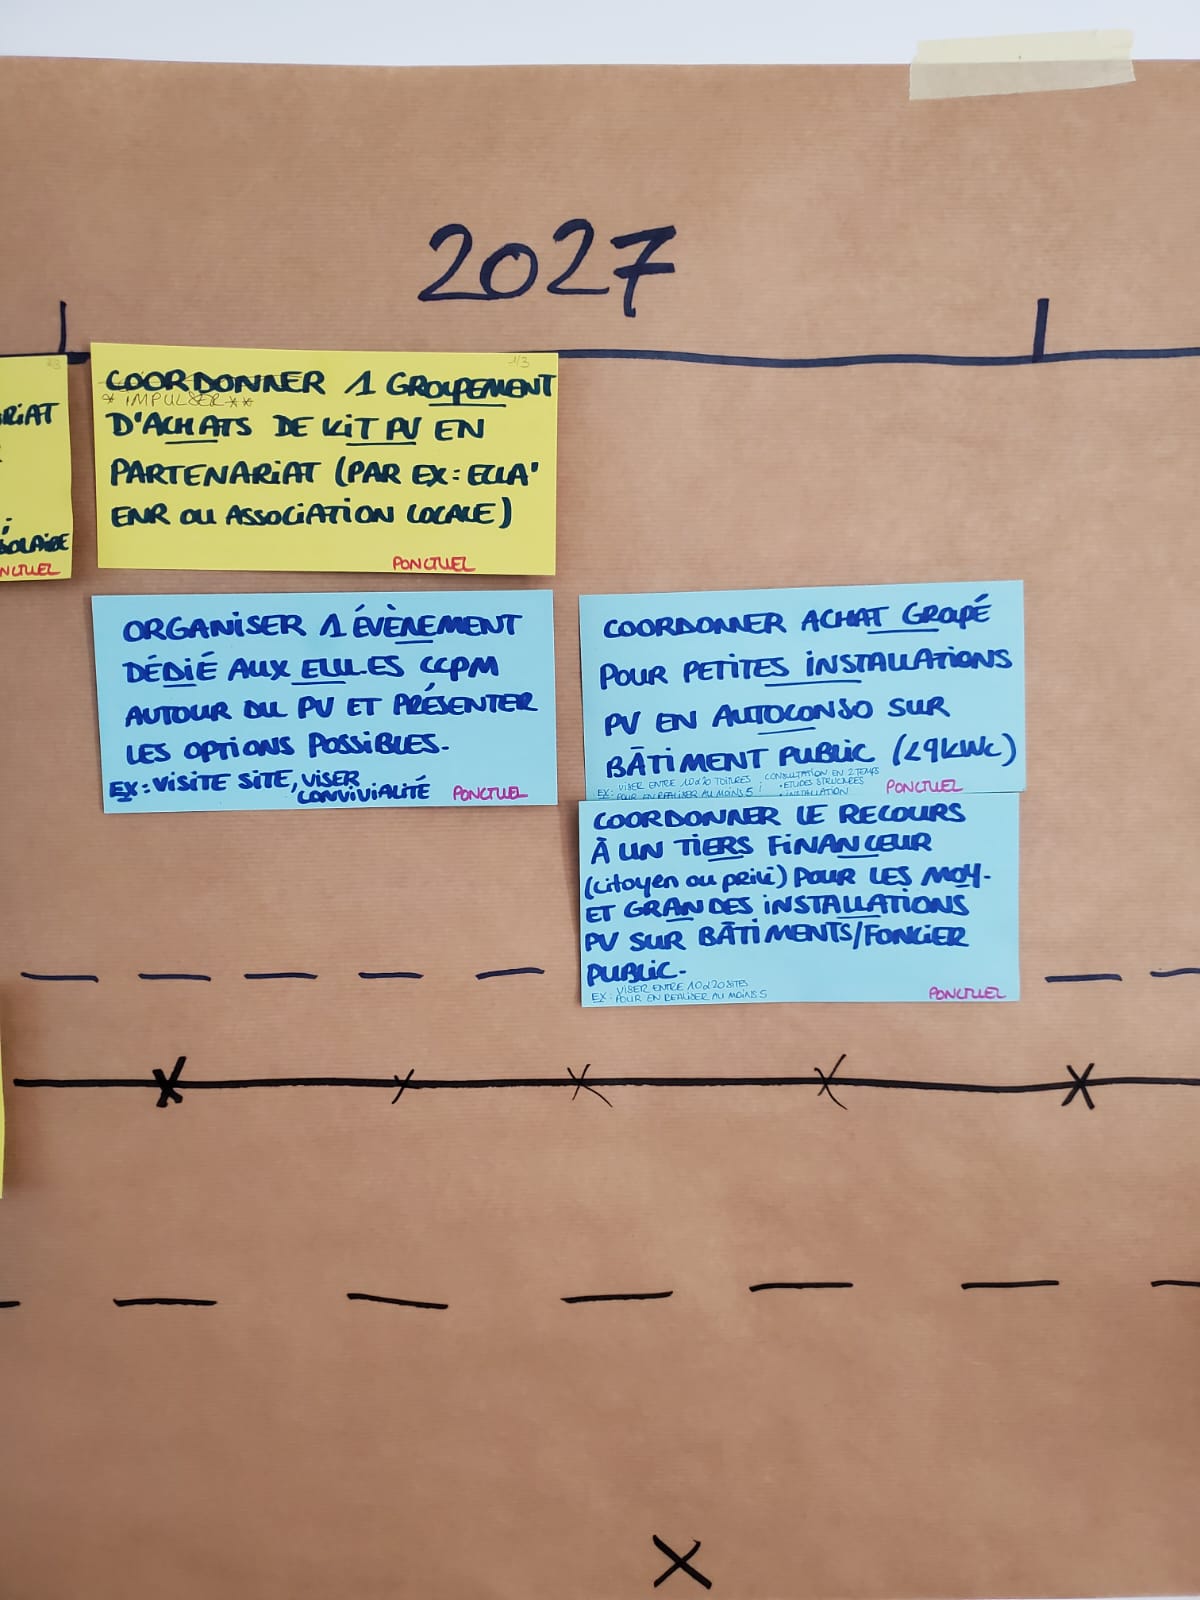 2027
RIAT
SOLAIRE
NCTUEL
1/3
COORDONNER 1 GROUPEMENT
* IMPULSER **
D'ACHATS DE KIT PV EN
PARTENARIAT (PAR EX: ELLA'
ENR OU ASSOCIATION LOCALE)
PONCTUEL
ORGANISER 1 ÉVÈNEMENT
DÉDIÉ AUX ELU.ES CCPM
AUTOUR DU PV ET PRÉSENTER
LES OPTIONS POSSIBLES.
EX: VISITE SITE, VISER
CONVIVIALITÉ
PONCTUEL
COORDONNER ACHAT GROUPÉ
POUR PETITES INSTALLATIONS
PV EN AUTOCONSO SUR
BÂTIMENT PUBLIC (<9KWC)
EX: VISER ENTRE 10 à 20 TOITURES
POUR EN REALISER AU MOINS 5 !
CONSULTATION EN 2 TEMPS
• ETUDES STRUCTURES
• INSTALLATION
PONCTUEL
COORDONNER LE RECOURS
À UN TIERS FINANCEUR
(citoyen ou privé) POUR LES MOY.
ET GRANDES INSTALLATIONS
PV SUR BÂTIMENTS/FONCIER
PUBLIC.
EX: VISER ENTRE 10 à 20 SITES
POUR EN REALISER AU MOINS 5
PONCTUEL